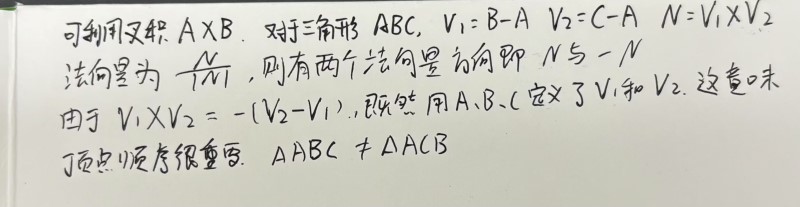 可利用叉积 A×B. 对于三角形 ABC, V₁=B-A V₂=C-A N=V₁×V₂
法向量为 N/|N|, 则有两个法向量方向即 N与-N
由于 V₁×V₂ = -(V₂-V₁), 既然用A、B、C定义了V₁和V₂. 这意味
顶点顺序很重要. △ABC ≠ △ACB